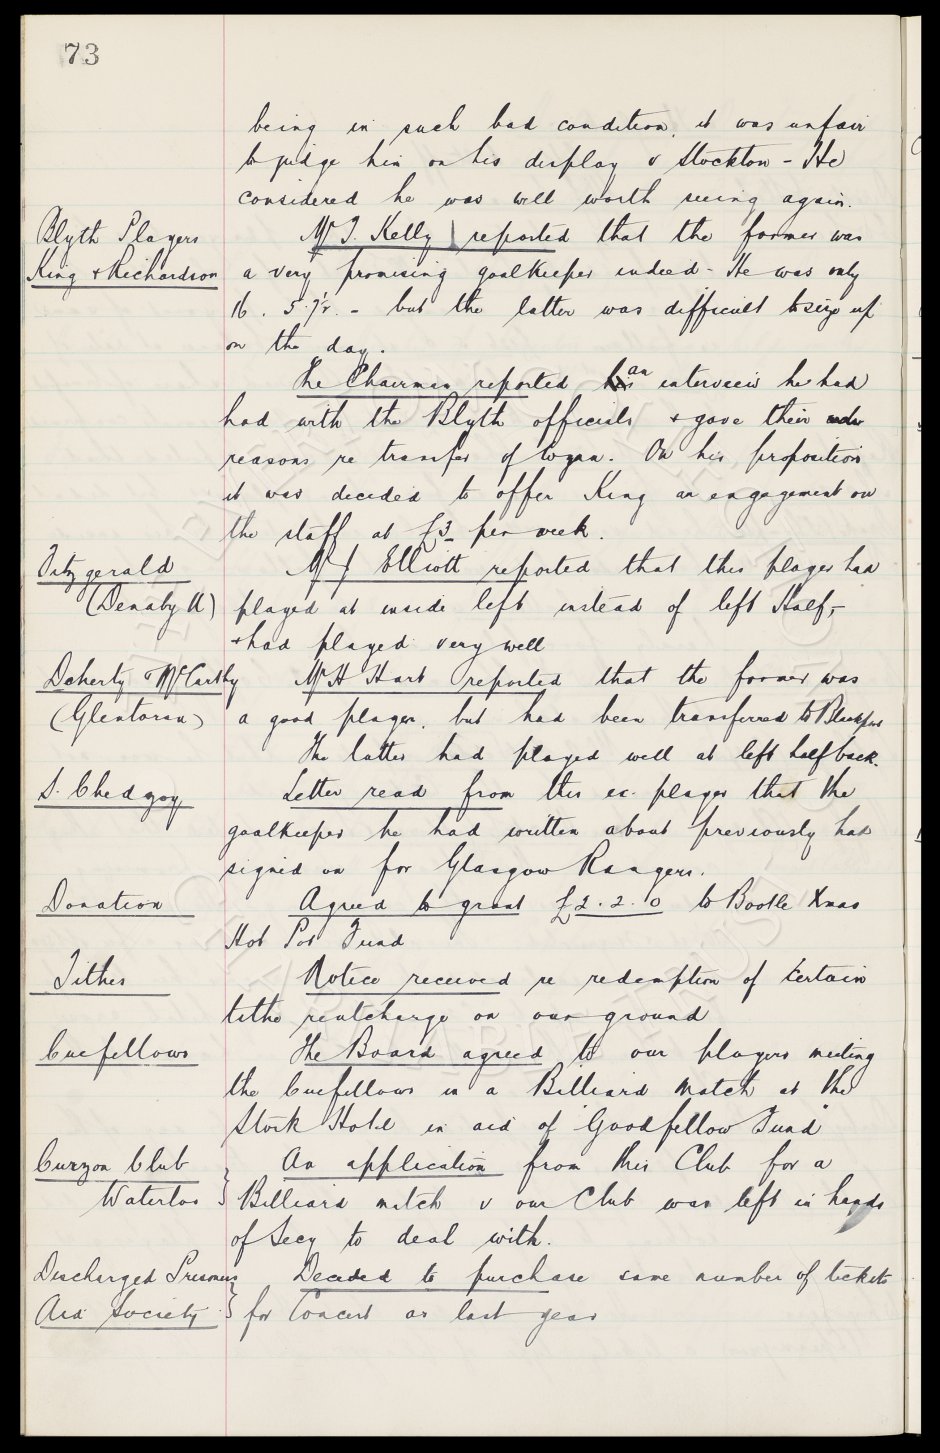 73
being in such bad condition, it was unfair
to judge him on his display v Stockton - He
considered he was well worth seeing again.
Blyth Players Mr T. Kelly reported that the former was
King & Richardson a very promising goalkeeper indeed - He was only
16 . 5.7½. - but the latter was difficult to size up
on the day.
The Chairman reported an interview he had
had with the Blyth officials & gave their
reasons re transfer of Logan. On his proposition
it was decided to offer King an engagement on
the staff at £3 per week.
Fitzgerald Mr J Elliott reported that this player had
(Denaby U) played at inside left instead of left Half,-
& had played very well
Doherty & McCarthy Mr H Hart reported that the former was
(Glentoran) a good player, but had been transferred to Blackpool
The latter had played well at left half back.
S. Chedgzoy Letter read from this ex. player that the
goalkeeper he had written about previously had
signed on for Glasgow Rangers.
Donation Agreed to grant £2.2.0 to Bootle Xmas
Hot Pot Fund
Tithes Notice received re redemption of certain
tithe rentcharge on our ground
Cuefellows The Board agreed to our players meeting
the Cuefellows in a Billiard Match at the
Stork Hotel in aid of "Goodfellow Fund"
Curzon Club An application from this Club for a
Waterloo } Billiard match v our Club was left in hands
of Secy to deal with.
Discharged Prisoners Decided to purchase same number of tickets
Aid Society } for Concert as last year